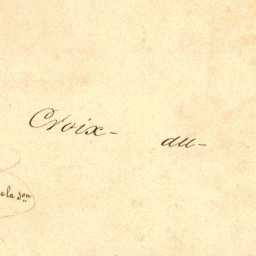 Croix- du-
de la Son